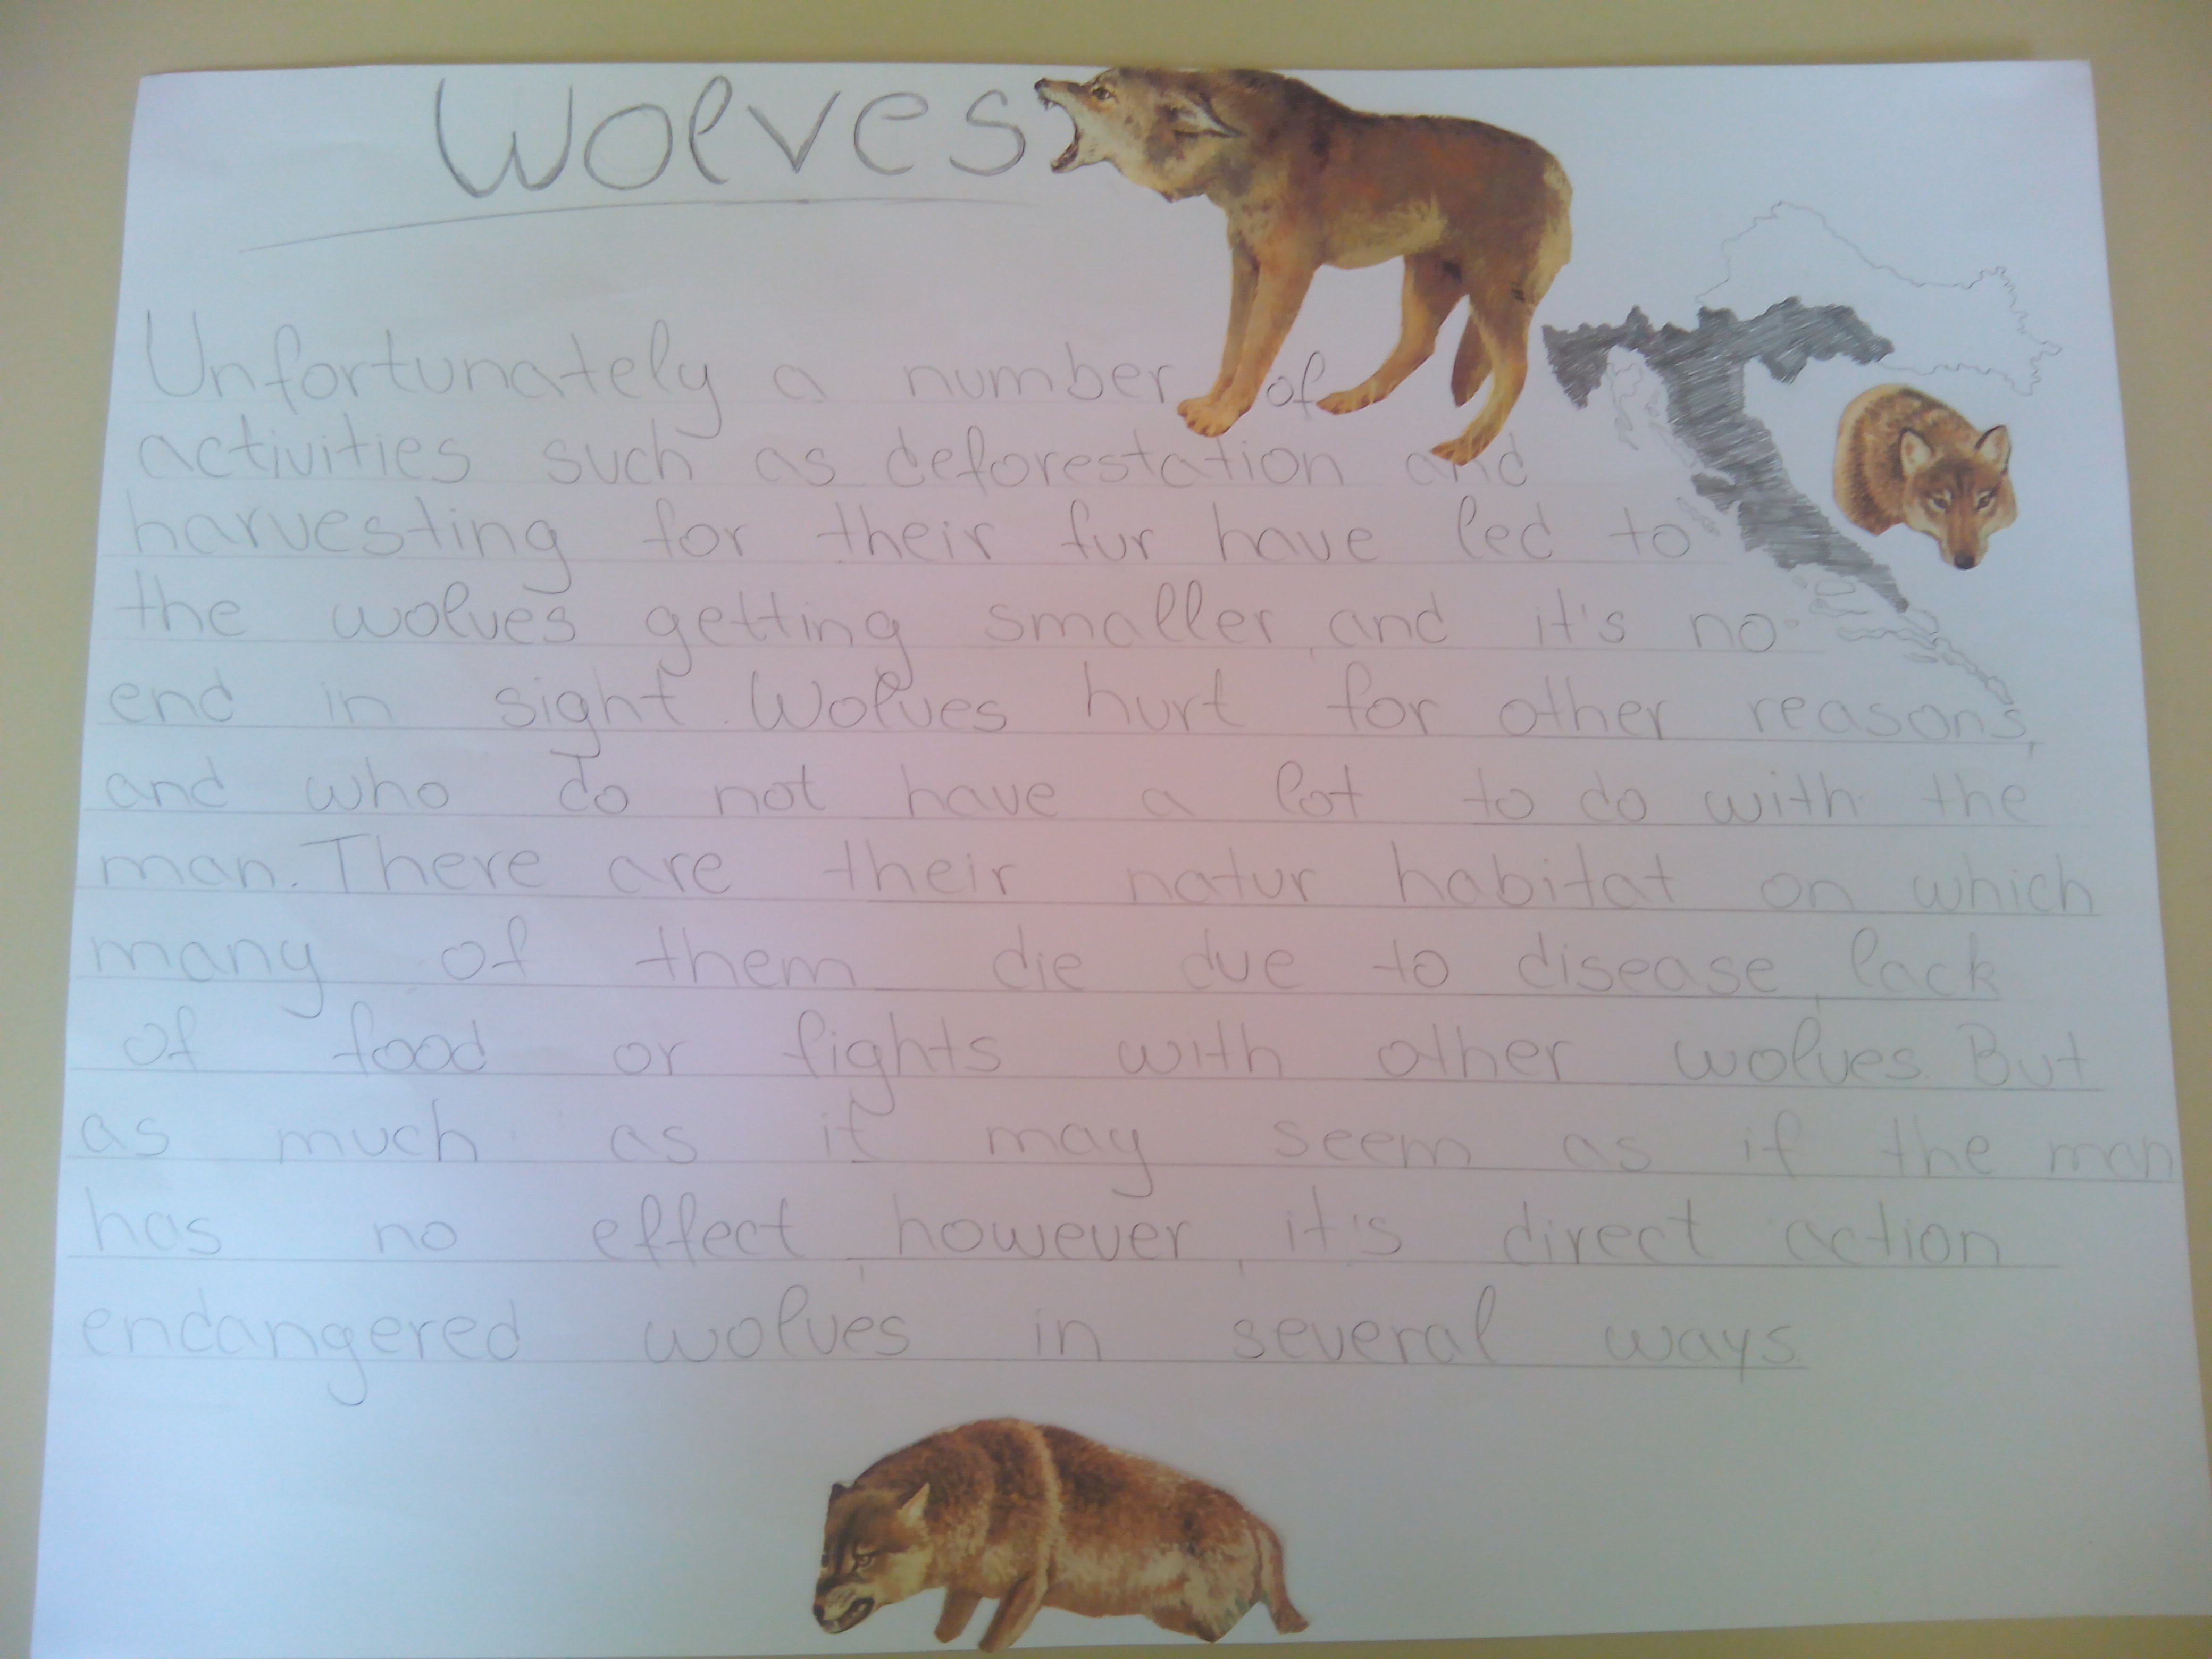 Wolves
Unfortunately a number of
activities such as deforestation and
harvesting for their fur have led to
the wolves getting smaller, and it's no
end in sight. Wolves hurt for other reasons,
and who do not have a lot to do with the
man. There are their natur habitat on which
many of them die due to disease, lack
of food or fights with other wolves. But
as much as it may seem as if the man
has no effect, however, it's direct action
endangered wolves in several ways